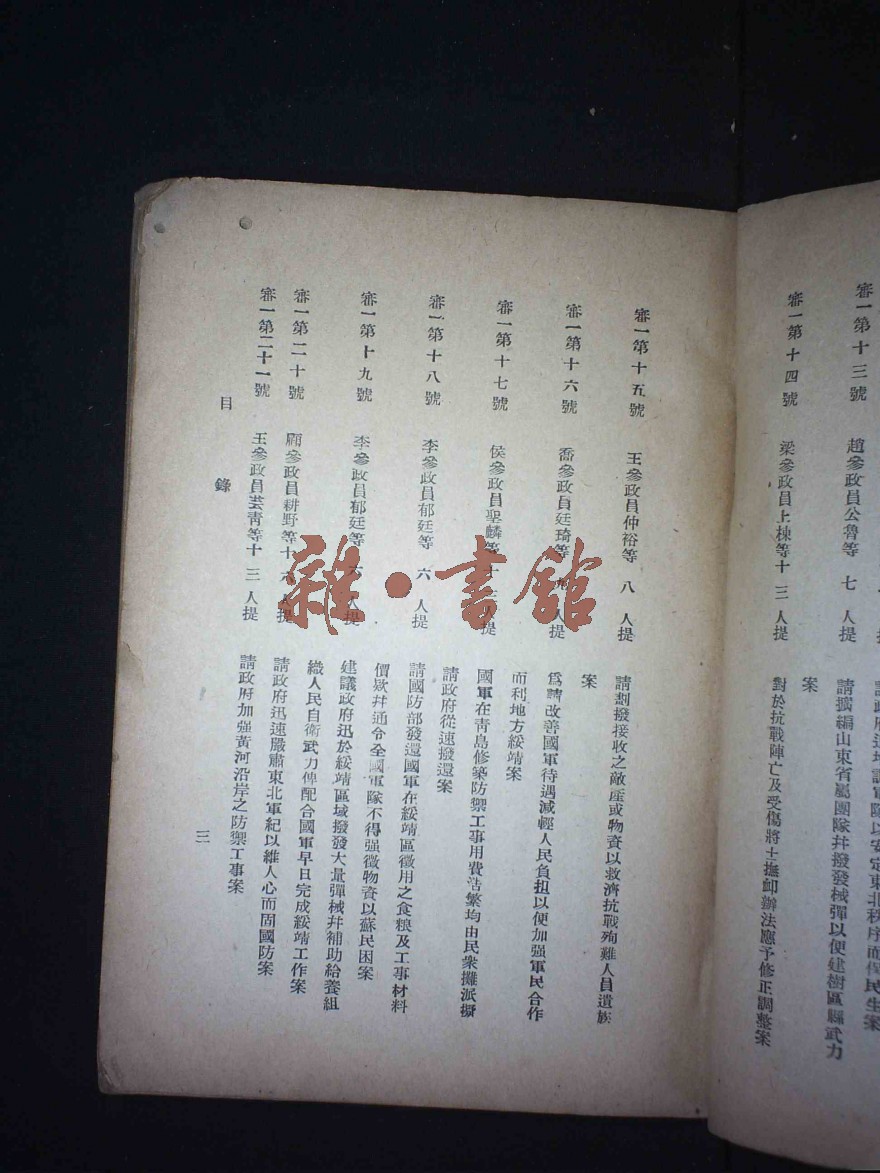 審一第十三號 趙參政員公魯等 七 人提 請擴編山東省屬團隊幷撥發械彈以便建樹區縣武力
案
審一第十四號 梁參政員上棟等十三人提 對於抗戰陣亡及受傷將士撫卹辦法應予修正調整案
審一第十五號 王參政員仲裕等 八 人提 請劃撥接收之敵產或物資以救濟抗戰殉難人員遺族
案
審一第十六號 喬參政員廷琦等 人提 爲請改善國軍待遇減輕人民負担以便加强軍民合作
而利地方綏靖案
審一第十七號 侯參政員聖麟等十 人提 國軍在青島修築防禦工事用費浩繁均由民衆攤派擬
請政府從速撥還案
審一第十八號 李參政員郁廷等 六 人提 請國防部發還國軍在綏靖區徵用之食粮及工事材料
價欵幷通令全國軍隊不得强徵物資以蘇民困案
審一第十九號 李參政員郁廷等 六 人提 建議政府迅於綏靖區域撥發大量彈械幷補助給養組
織人民自衛武力俾配合國軍早日完成綏靖工作案
審一第二十號 參政員耕野等十六人提 請政府迅速嚴肅東北軍紀以維人心而固國防案
審一第二十一號 王參政員芸青等十三人提 請政府加强黃河沿岸之防禦工事案
目錄
三
雜·書館